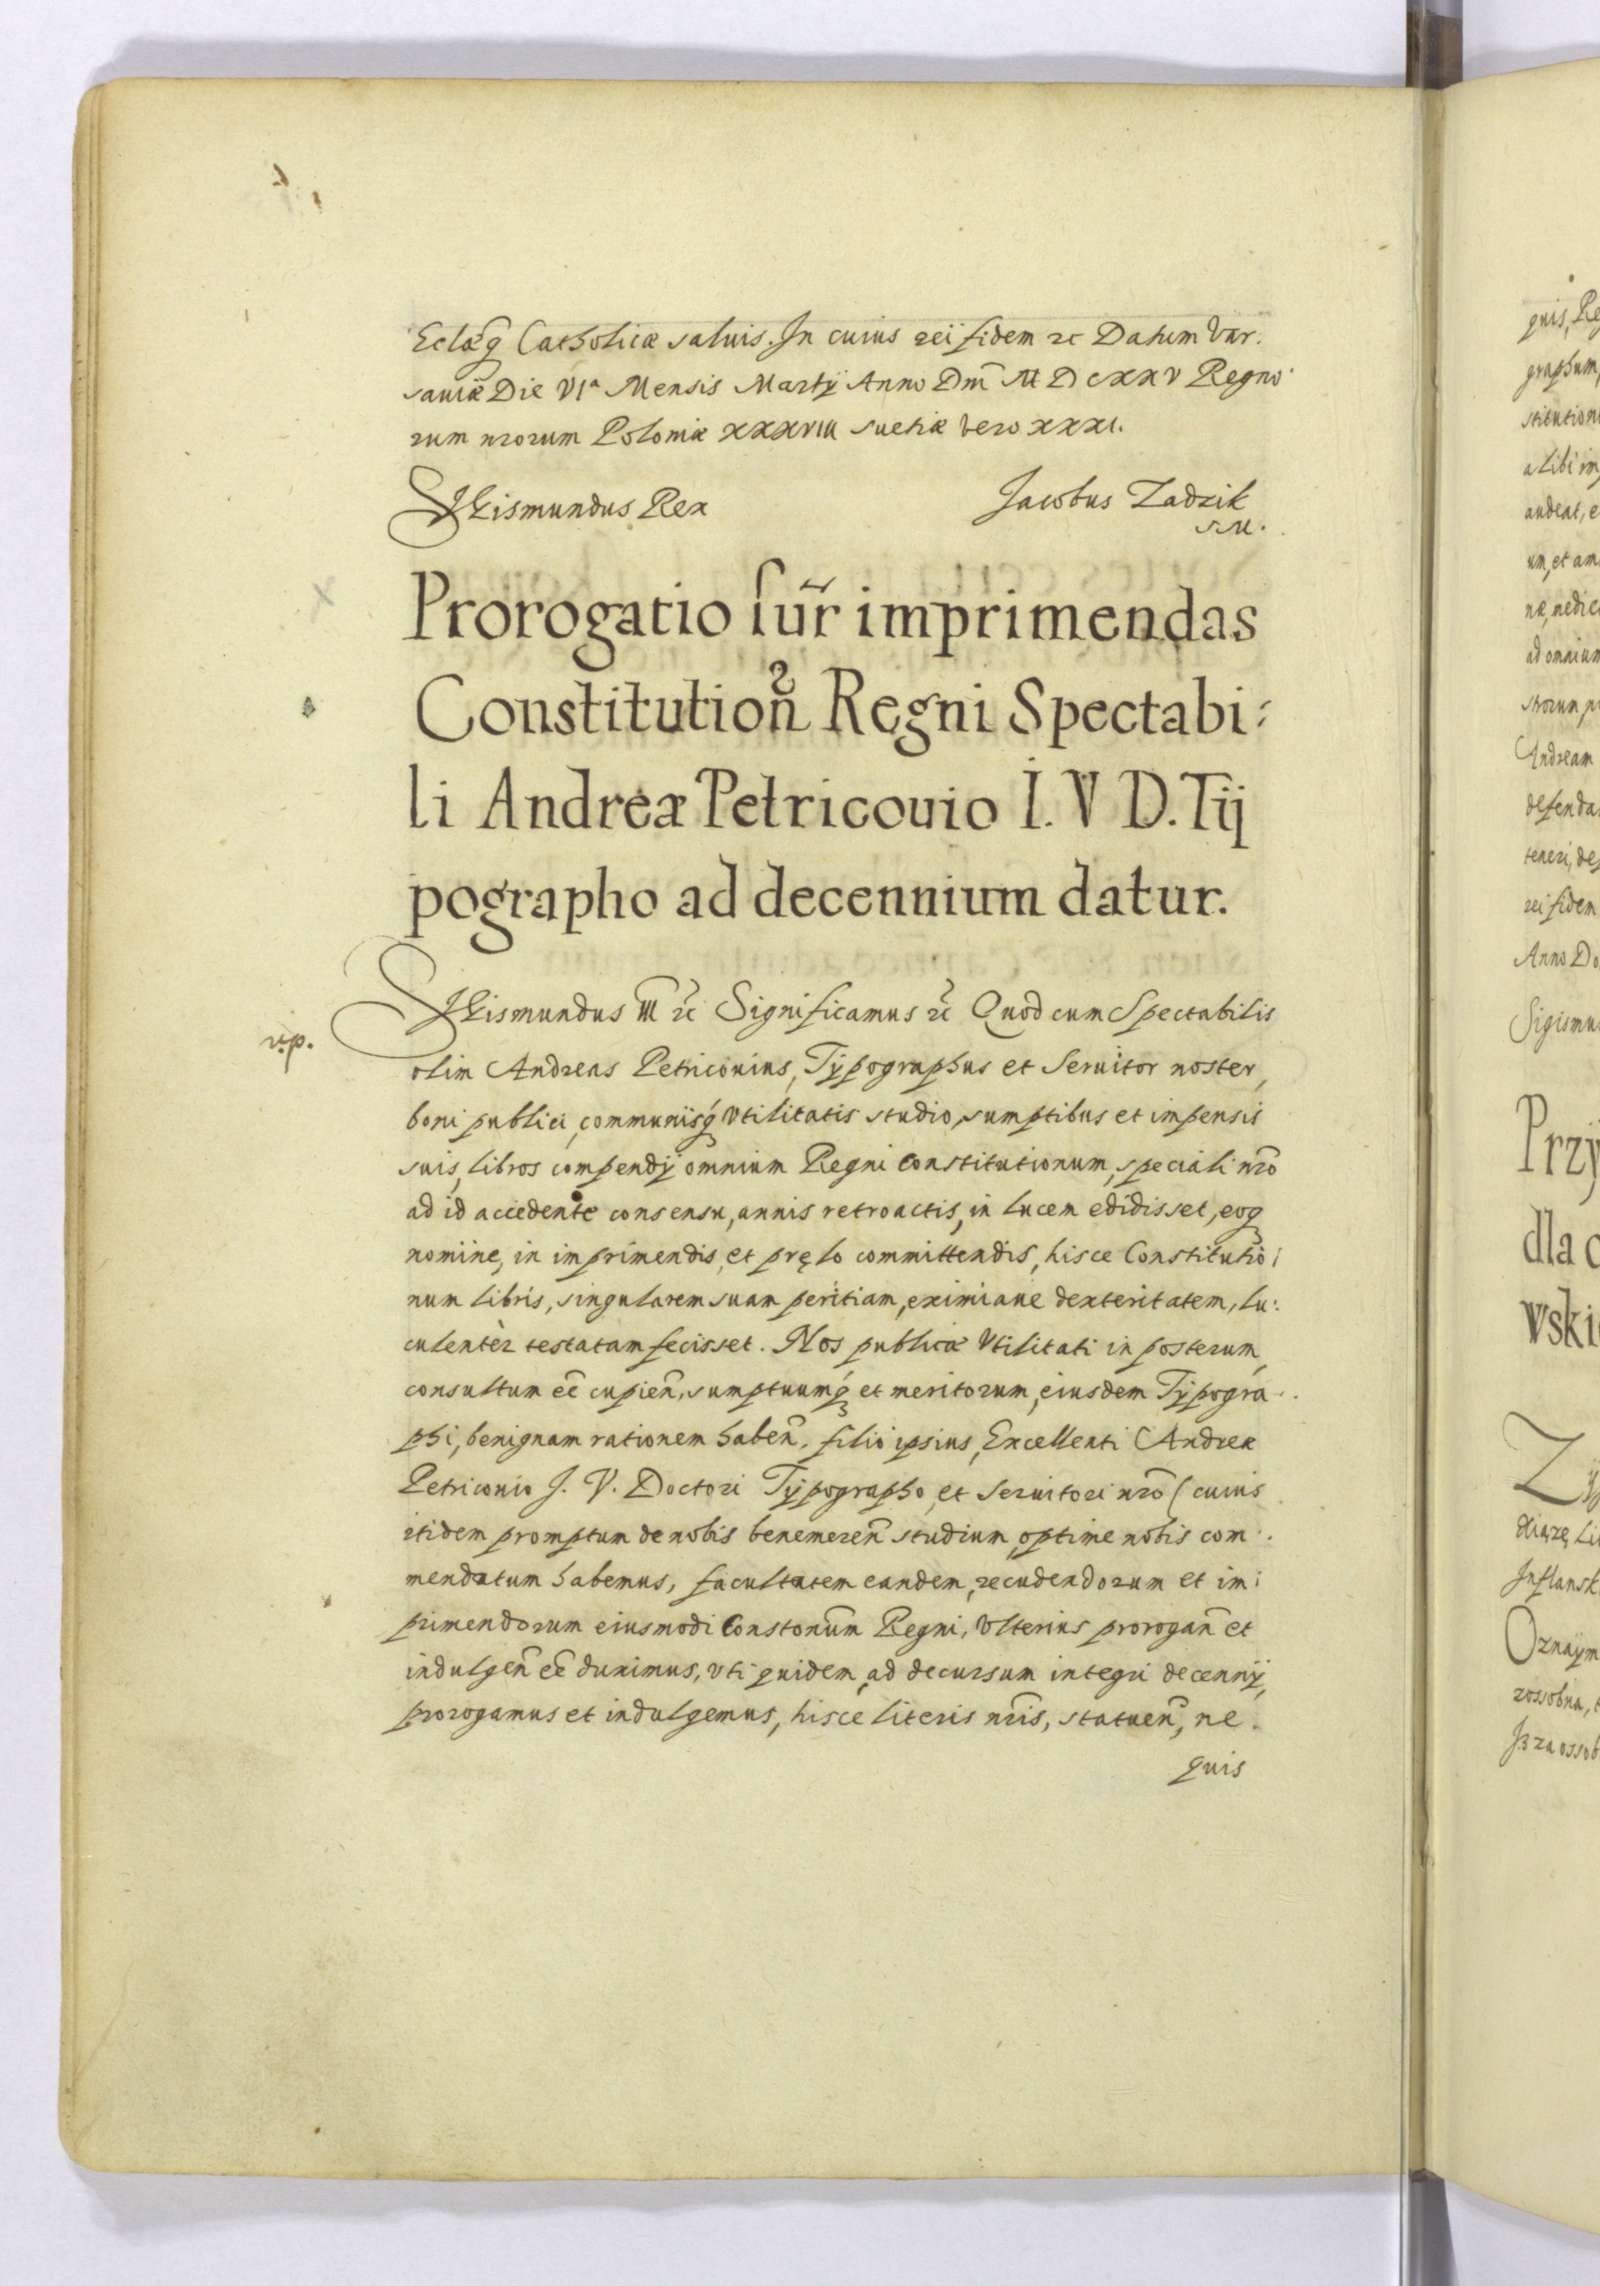 Eclæq̃ Catholicæ saluis. In cuius rei fidem ꝛc Datum Var:
sauiæ Die VIª Mensis Martÿ Anno Dm̃ M D CXXV Regno
rum nrorum Poloniæ XXXVIII Suetiæ vero XXXI.
Sigismundus Rex
Jacobus Zadzik
S. M.
Prorogatio sur̃ imprimendas
Constitution̄ Regni Spectabi:
li Andreæ Petricouio I. V D. Tÿ
pographo ad decennium datur.
r.p.
Sigismundus III ꝛc Significamus ꝛc Quod cum Spectabilis
olim Andreas Petriconius, Typographus et Seruitor noster,
boni publici, communisq́ vtilitatis studio, sumptibus et impensis
suis, libros compendÿ omnium Regni Constitutionum, speciali nr̃o
ad id accedente consensu, annis retroactis, in lucem edidisset, eoq
nomine, in imprimendis, et pręlo committendis, hisce Constitutio:
num libris, singularem suam peritiam, eximiamue dexteritatem, lu:
culentèr testatam fecisset. Nos publicæ vtilitati in posterum,
consultum eē cupien̄, sumptuumq́ et meritorum, eiusdem Typogra:
phi, benignam rationem haben̄, filio ipsius, Excellenti Andreæ
Petriconio J. V. Doctori Typographo, et Seruitori nr̃o (cuius
itidem promptum de nobis benemeren̄ studium, optime nobis com:
mendatum habemus, facultatem eandem, recudendorum et im:
primendorum eiusmodi Constonūm Regni, vlterius prorogan̄ et
indulgen̄ eē duximus, vti quidem, ad decursum integri decennÿ,
prorogamus et indulgemus, hisce literis nr̃is, statuen̄, ne
quis